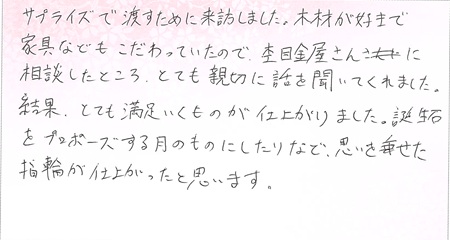 サプライズで渡すために来訪しました。木材が好きで
家具などもこだわっていたので、杢目金屋さんに
相談したところ、とても親切に話を聞いてくれました。
結果、とても満足いくものが仕上がりました。誕生石
をプロポーズする月のものにしたりなで、思いを乗せた
指輪が仕上がったと思います。